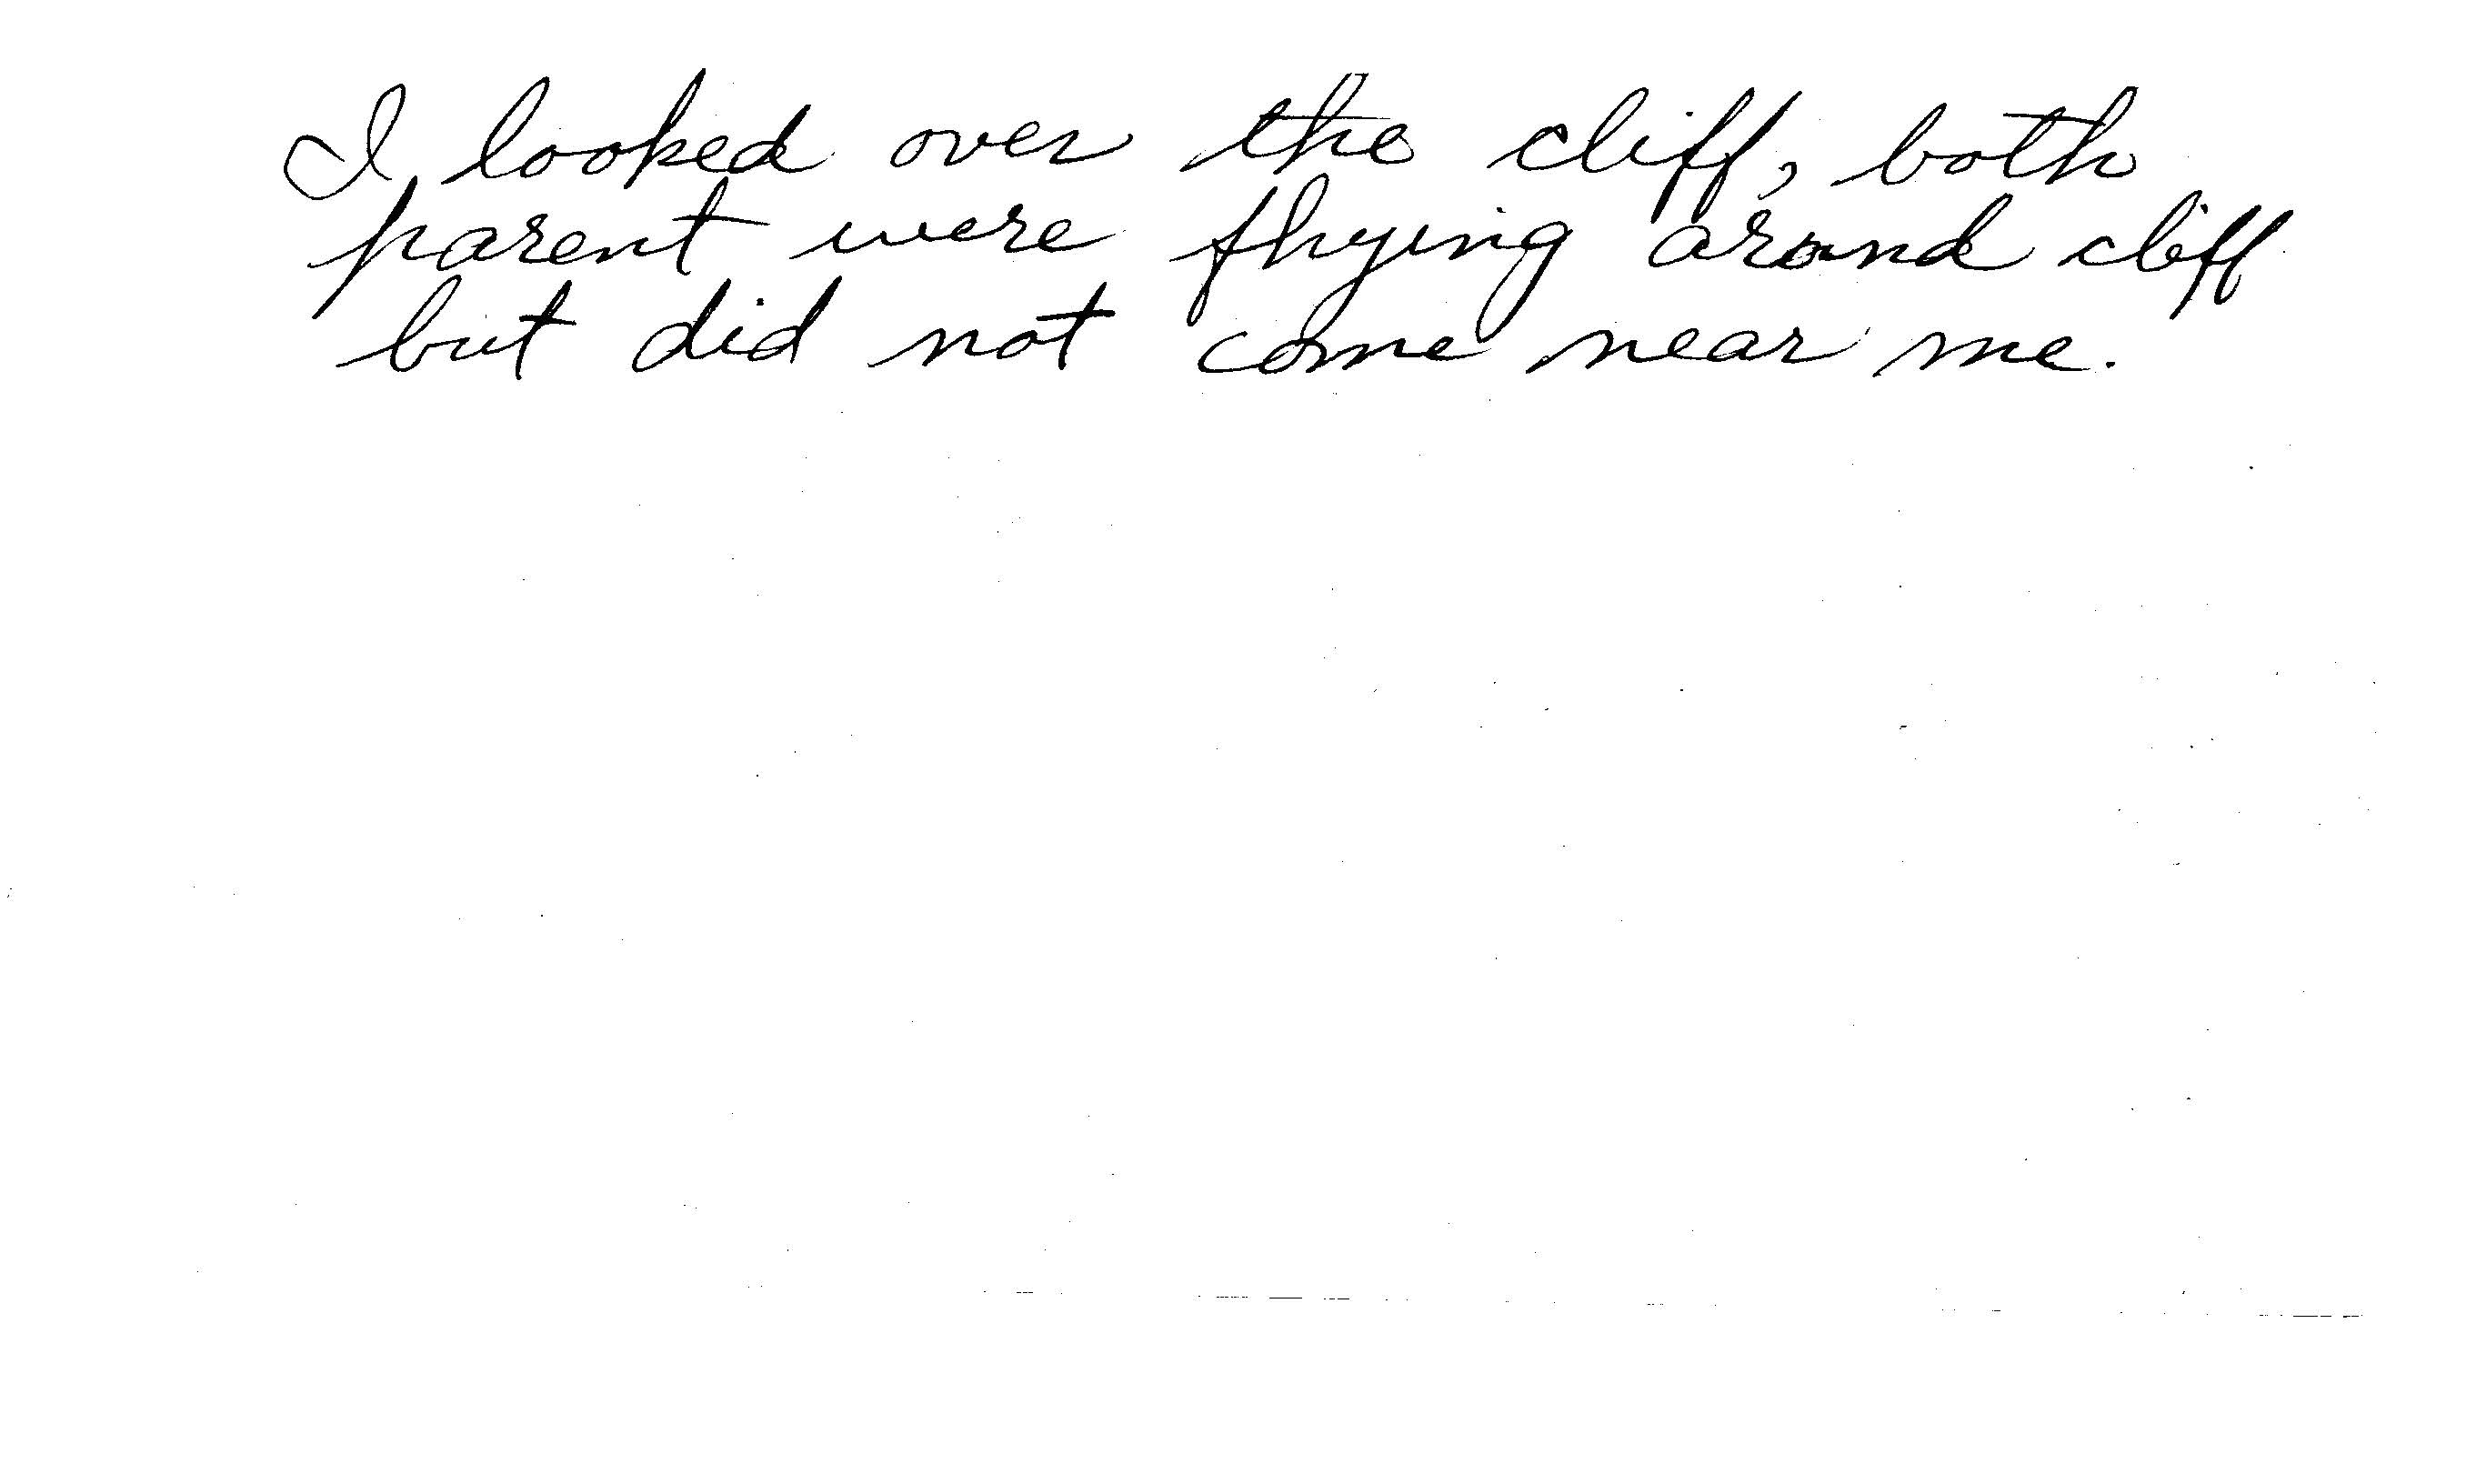 I looked over the cliff, both
parent were flying around cliff
but did not come near me.